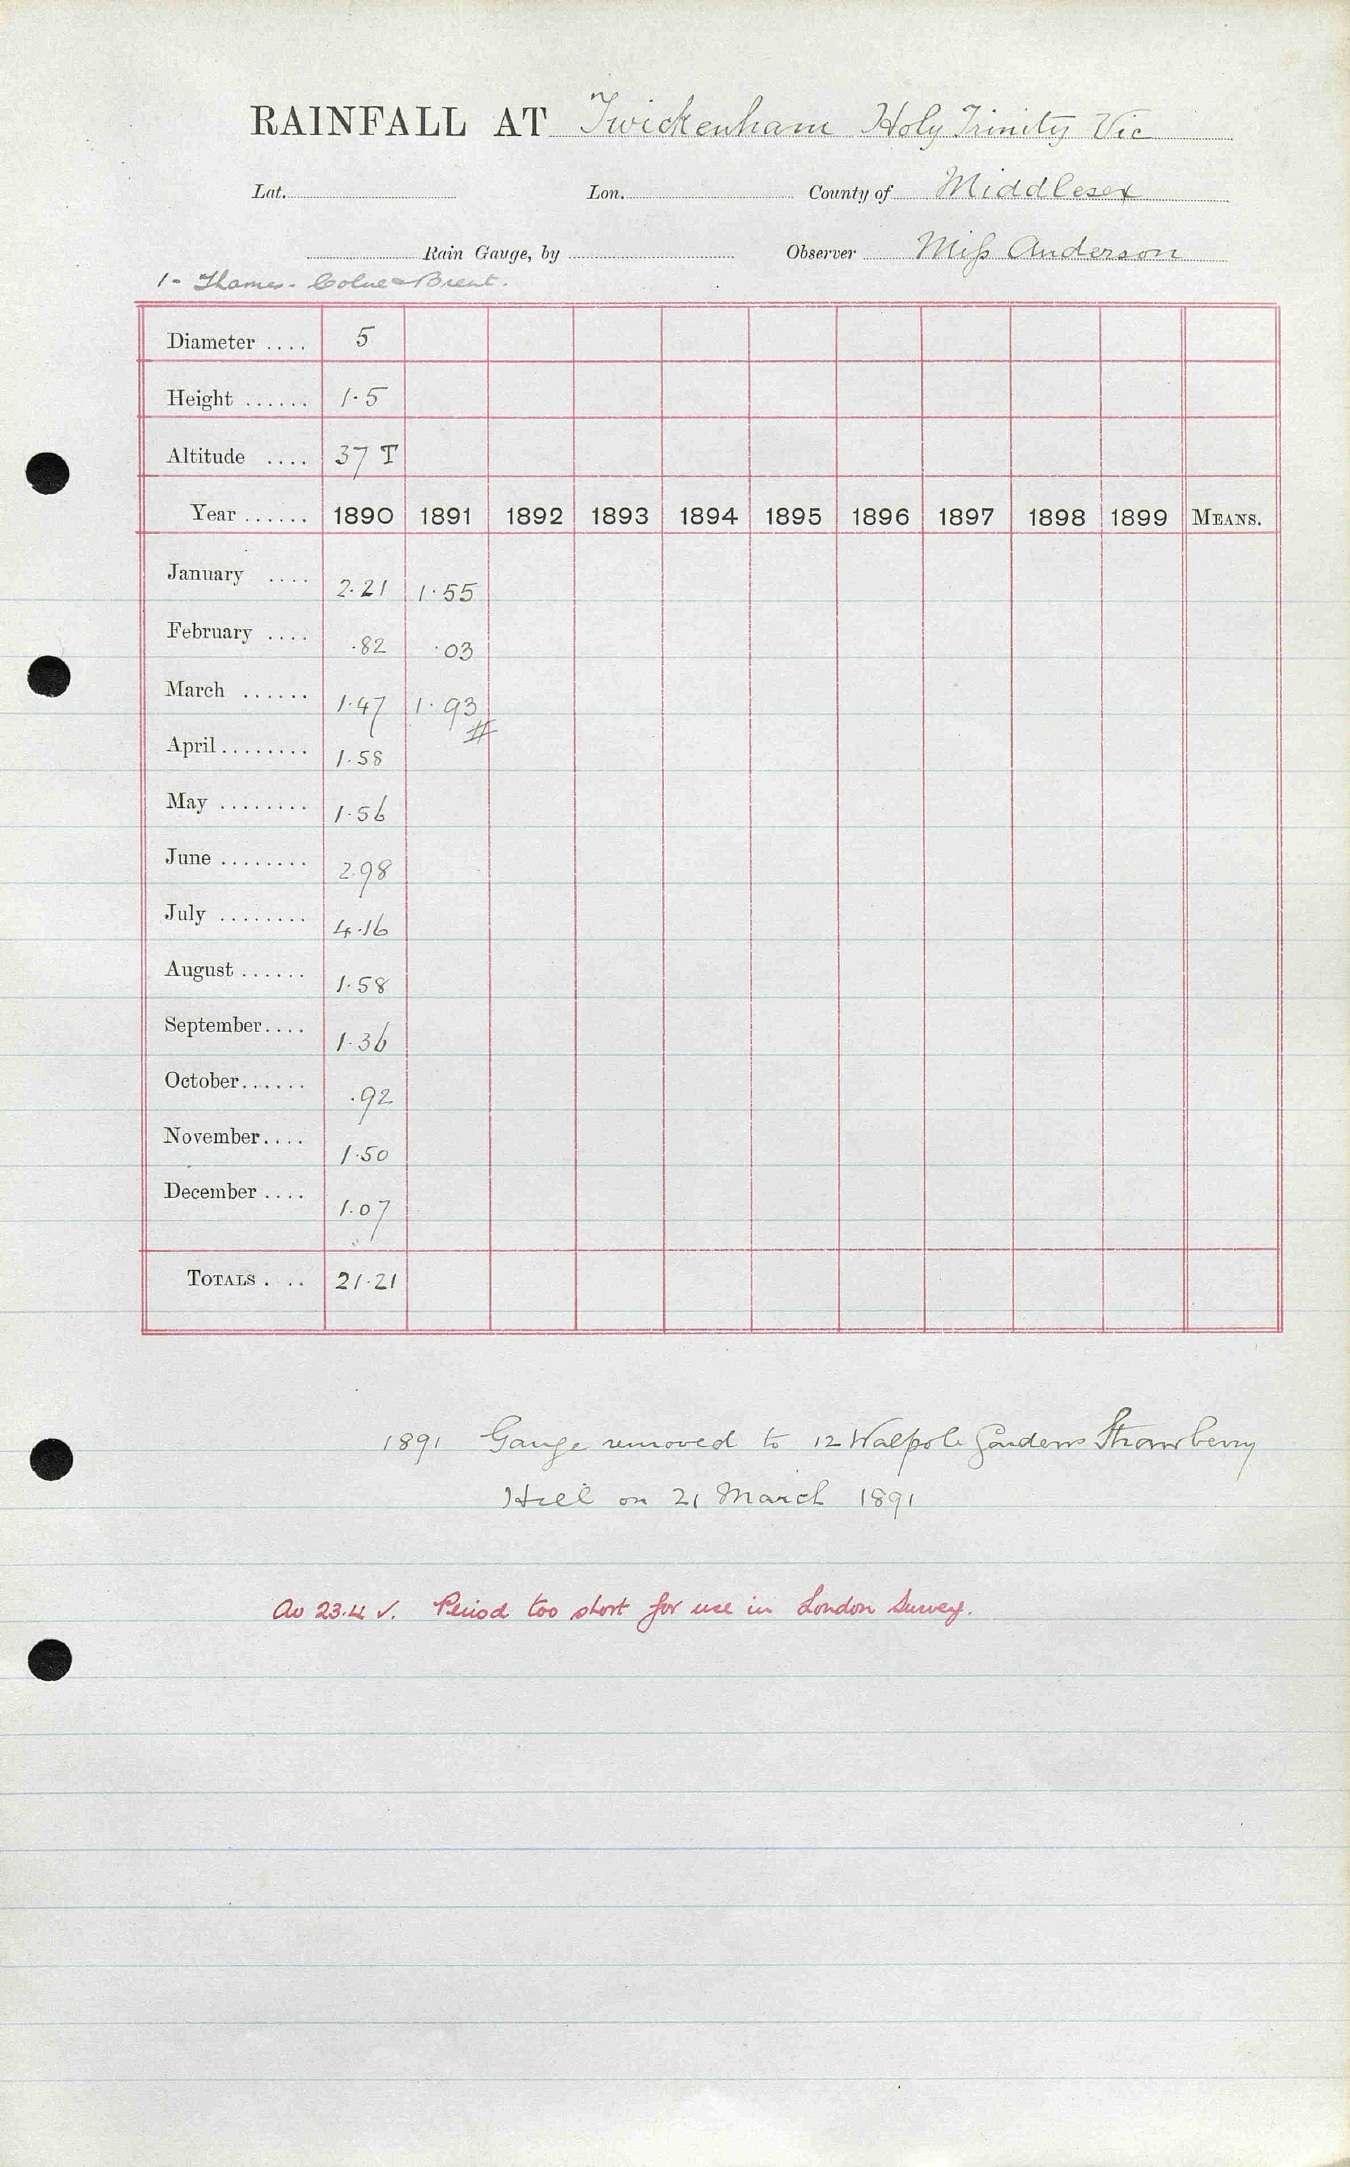 RAINFALL AT Twickenham Holy Trinity Vic
Lat. Lon. County of Middlesex
Rain Gauge, by Observer Miss Anderson
1 - Thames - Colne & Brent.
Diameter .... 5
Height ...... 1.5
Altitude .... 37 T
Year ...... 1890 1891 1892 1893 1894 1895 1896 1897 1898 1899 MEANS.
January .... 2.21 1.55
February .... .82 .03
March ...... 1.47 1.93
#
April ........ 1.58
May ........ 1.56
June ........ 2.98
July ........ 4.16
August ...... 1.58
September .... 1.36
October ...... .92
November .... 1.50
December .... 1.07
TOTALS . .. 21.21
1891 Gauge removed to 12 Walpole Gardens Strawberry
Hill on 21 March 1891
Av 23.4 ✓. Period too short for use in London Survey.